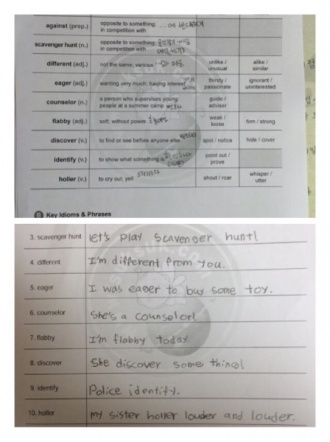 against (prep.) opposite to something in competition with
scavenger hunt (n.) opposite to something in competition with
different (adj.) not the same, various unlike / unusual alike / similar
eager (adj.) wanting very much, having interest thirsty / passionate ignorant / uninterested
counselor (n.) a person who supervises young people at a summer camp guide / advisor
flabby (adj.) soft, without power weak / loose firm / strong
discover (v.) to find or see before anyone else spot / notice hide / cover
identify (v.) to show what something is point out / prove
holler (v.) to cry out, yell shout / roar whisper / utter
Key Idioms & Phrases
3. scavenger hunt let's play scavenger hunt!
4. different I'm different from you.
5. eager I was eager to buy some toy.
6. counselor She's a counselor!
7. flabby I'm flabby today
8. discover She discover some thing!
9. identify Police identify.
10. holler my sister holler louder and louder.